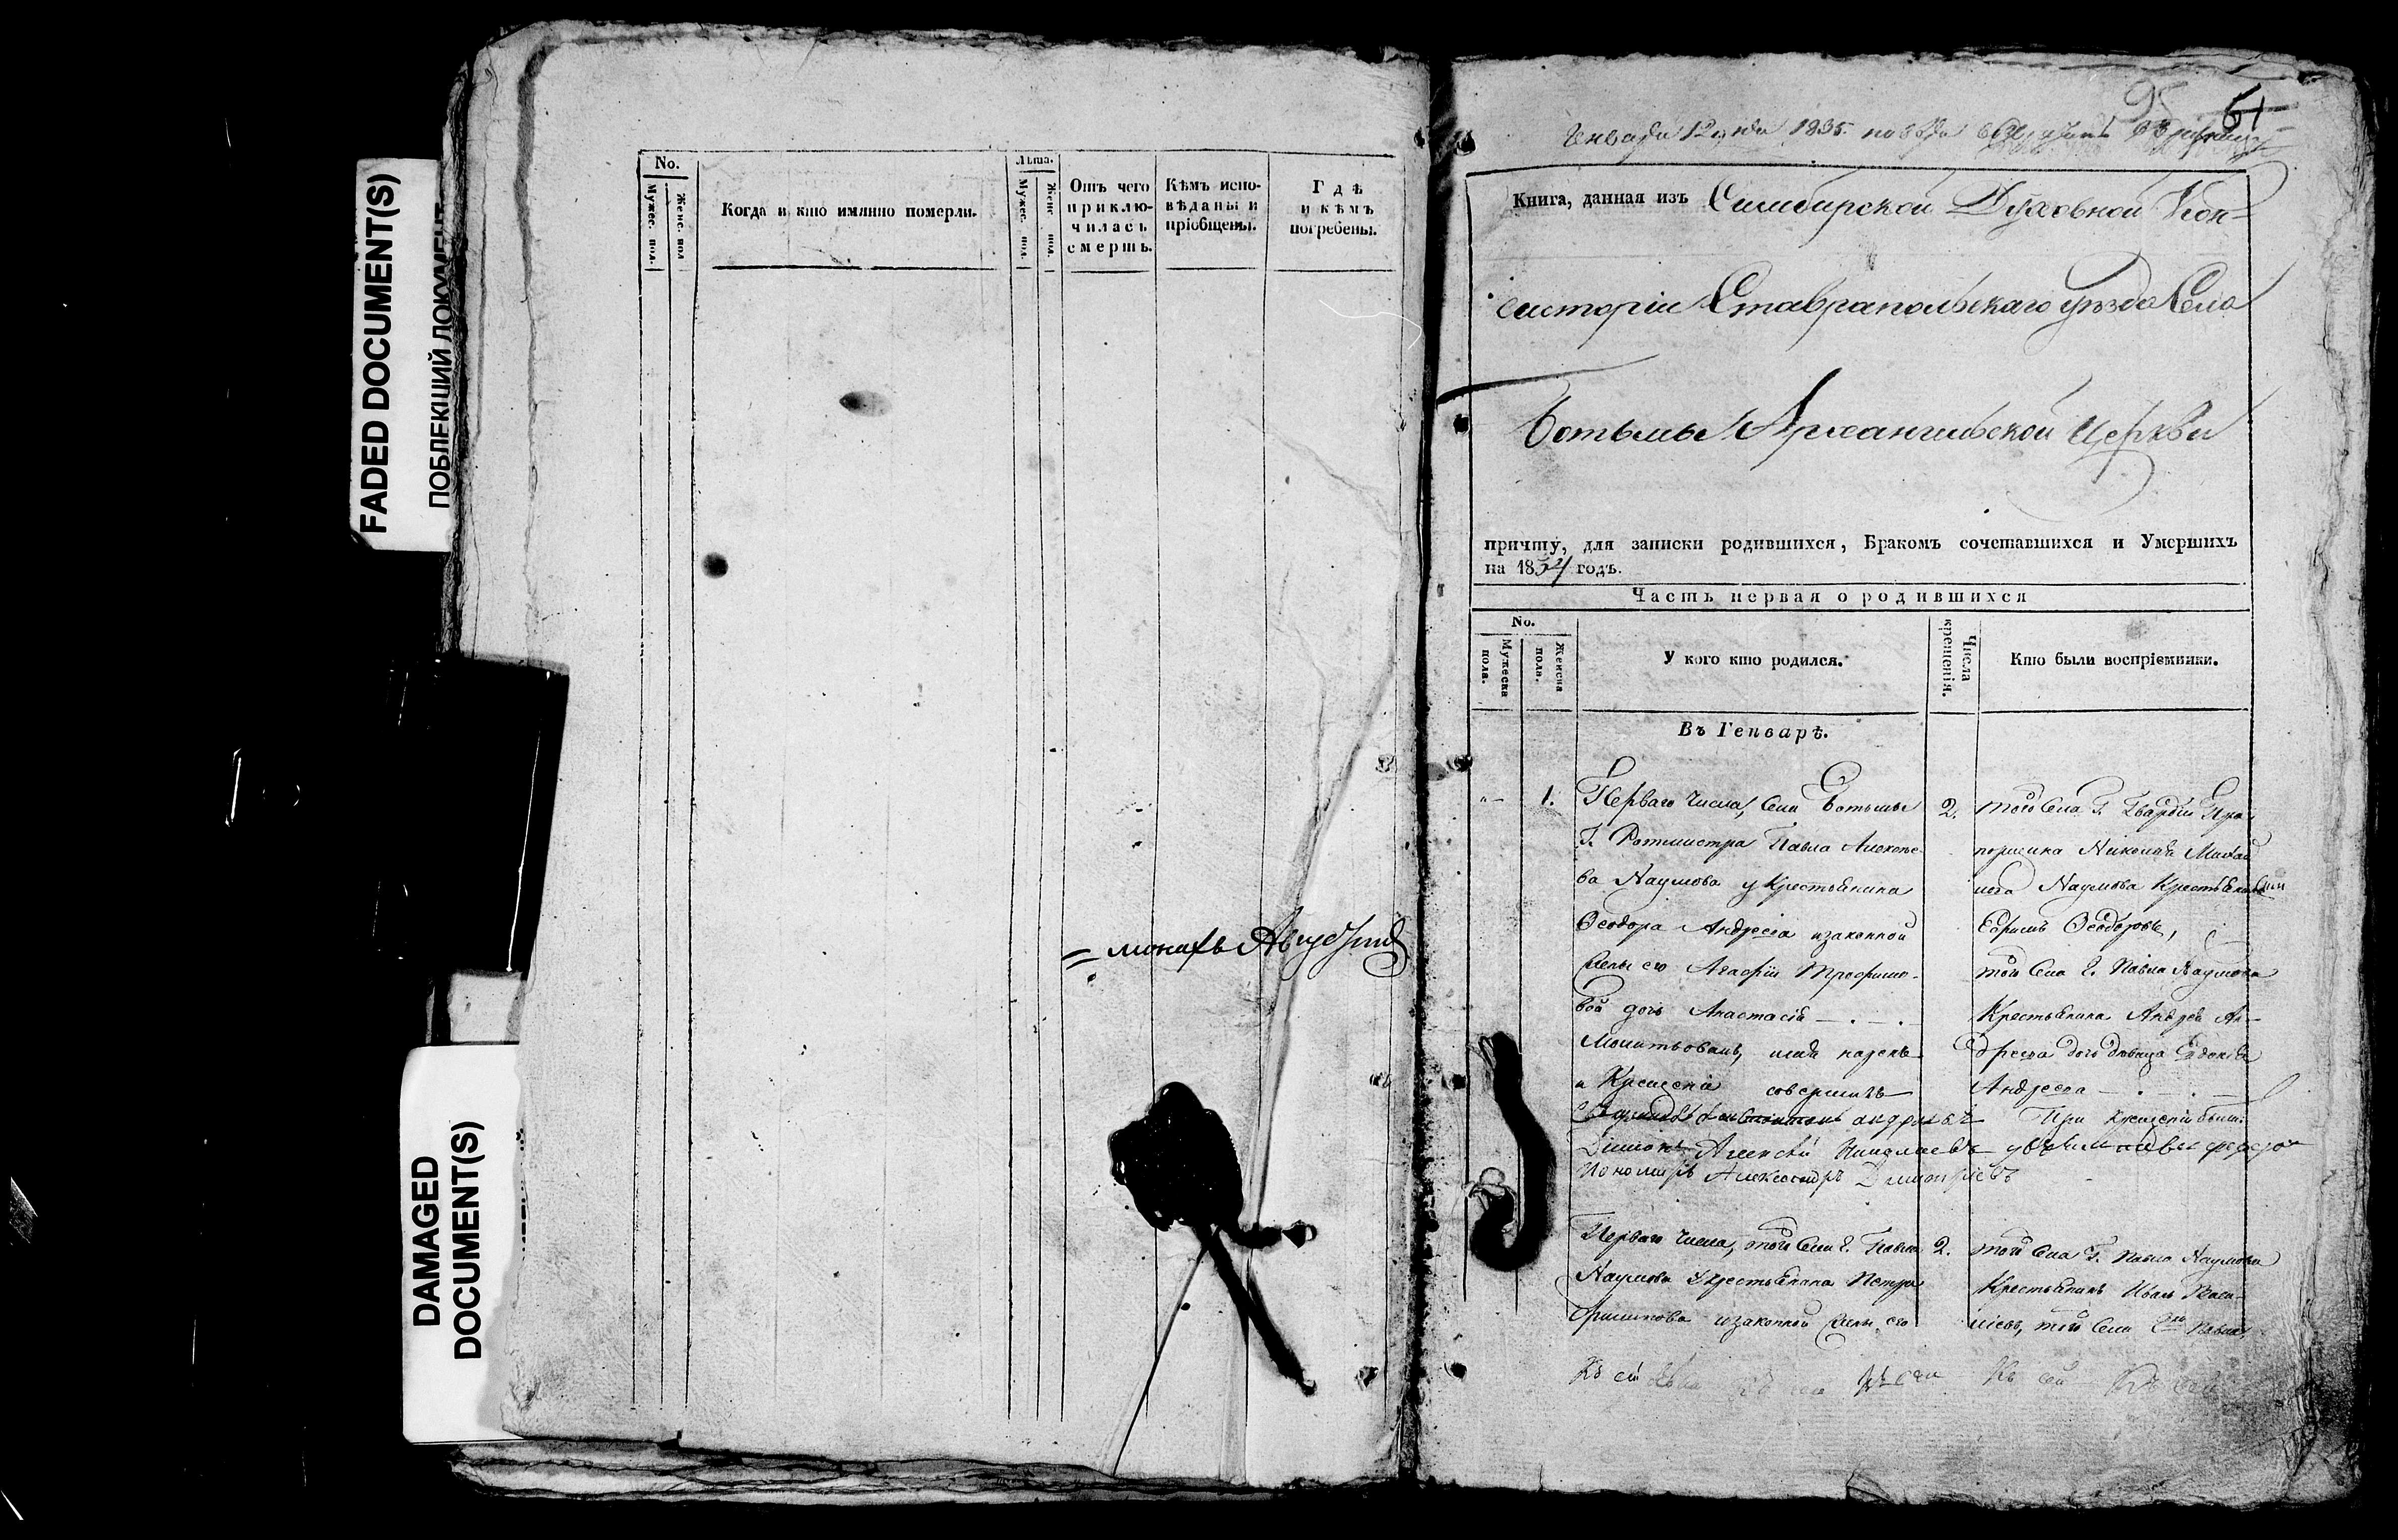 FADED DOCUMENT(S)
ПОБЛЕКШИЙ ДОКУМЕНТ
DAMAGED
DOCUMENT(S)
No.
Мужес. пол.
Женс. пол
Когда и кто имянно померли.
Лѣта.
Мужес. пол.
Женс. пол.
Отъ чего
приклю-
чилась
смерть.
Кѣмъ испо-
вѣданы и
пріобщены.
Гдѣ
и кѣмъ
погребены.
= монахъ
95 61
Генваря 12 дня 1835.
Книга, данная изъ Симбирской Духовной Кон-
систоріи Ставрапольскаго уѣзда Села
Ботьмы Архангильской Церкви
причту, для записки родившихся, Бракомъ сочетавшихся и Умершихъ
на 1834 годъ.
Часть первая о родившихся
No.
Мужеска
пола.
Женска
пола.
У кого кто родился.
Числа
крещенія.
Кто были воспріемники.
Въ Генварѣ.
1. Перваго Числа, Села Ботьмы
Г. Ротмистра Павла Алексее-
ва Наумова у Крестьянина
Ѳеодора Андреева и законной
жены его Агафіи Трофимо-
вой дочь Анастасія
Молитвовалъ, имя нарекъ
и Крещеніе совершилъ
Дияконъ Алексѣй Николаевъ
Пономарь Александръ Димитріевъ
2. того Села Г. Гвардіи Пра-
порщика Николая Михай
лова Наумова Крестьянинъ
Ефимъ Ѳеодоровъ,
того Села Г. Павла Наумова
Крестьянина Андрея Ан-
дреева дочь девица Евдокія
Андреева
При крещеніи были
Перваго Числа, того Села Г. Павла
Наумова у Крестьянина Петра
и законной жены его
2. того Села Г. Павла Наумова
Крестьянинъ Иванъ Васи-
ліевъ, того Села Г. Павла
Къ сей